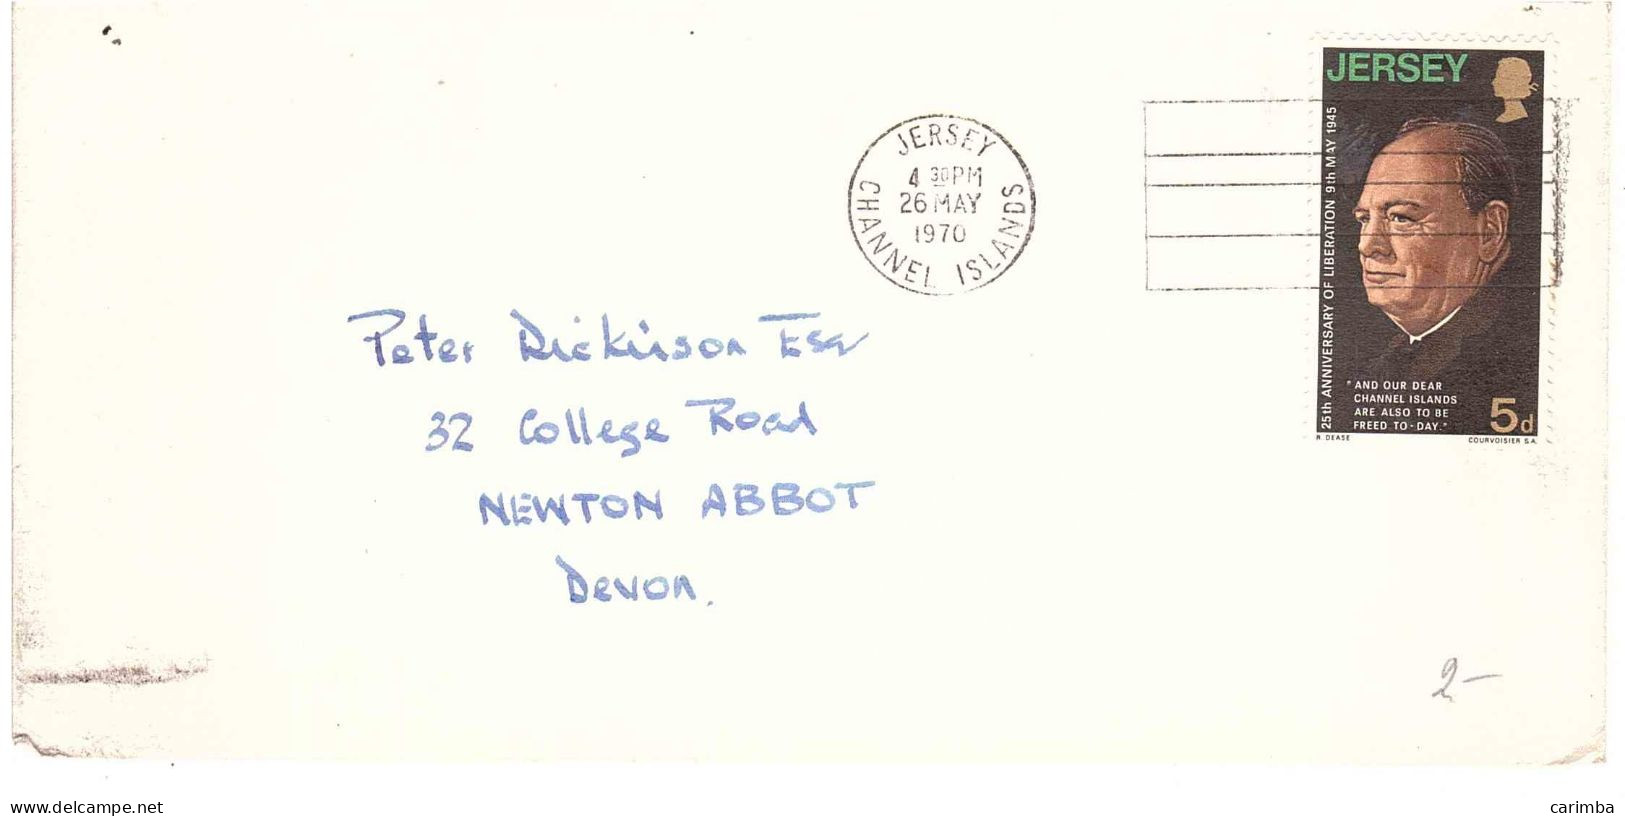 JERSEY
4 30PM
26 MAY
1970
CHANNEL ISLANDS
JERSEY
25th ANNIVERSARY OF LIBERATION 9th MAY 1945
"AND OUR DEAR
CHANNEL ISLANDS
ARE ALSO TO BE
FREED TO-DAY."
5d
R. DEASE COURVOISIER S.A.
Peter Dickinson Esq
32 College Road
NEWTON ABBOT
Devon.
2-
www.delcampe.net carimba